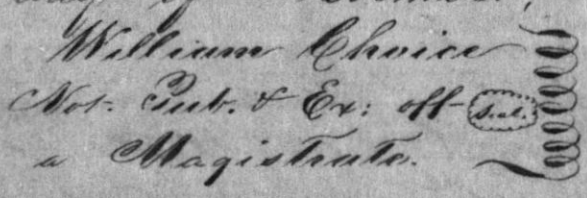 William Choice
Not. Pub. & Ex: off Seal.
a Magistrate.